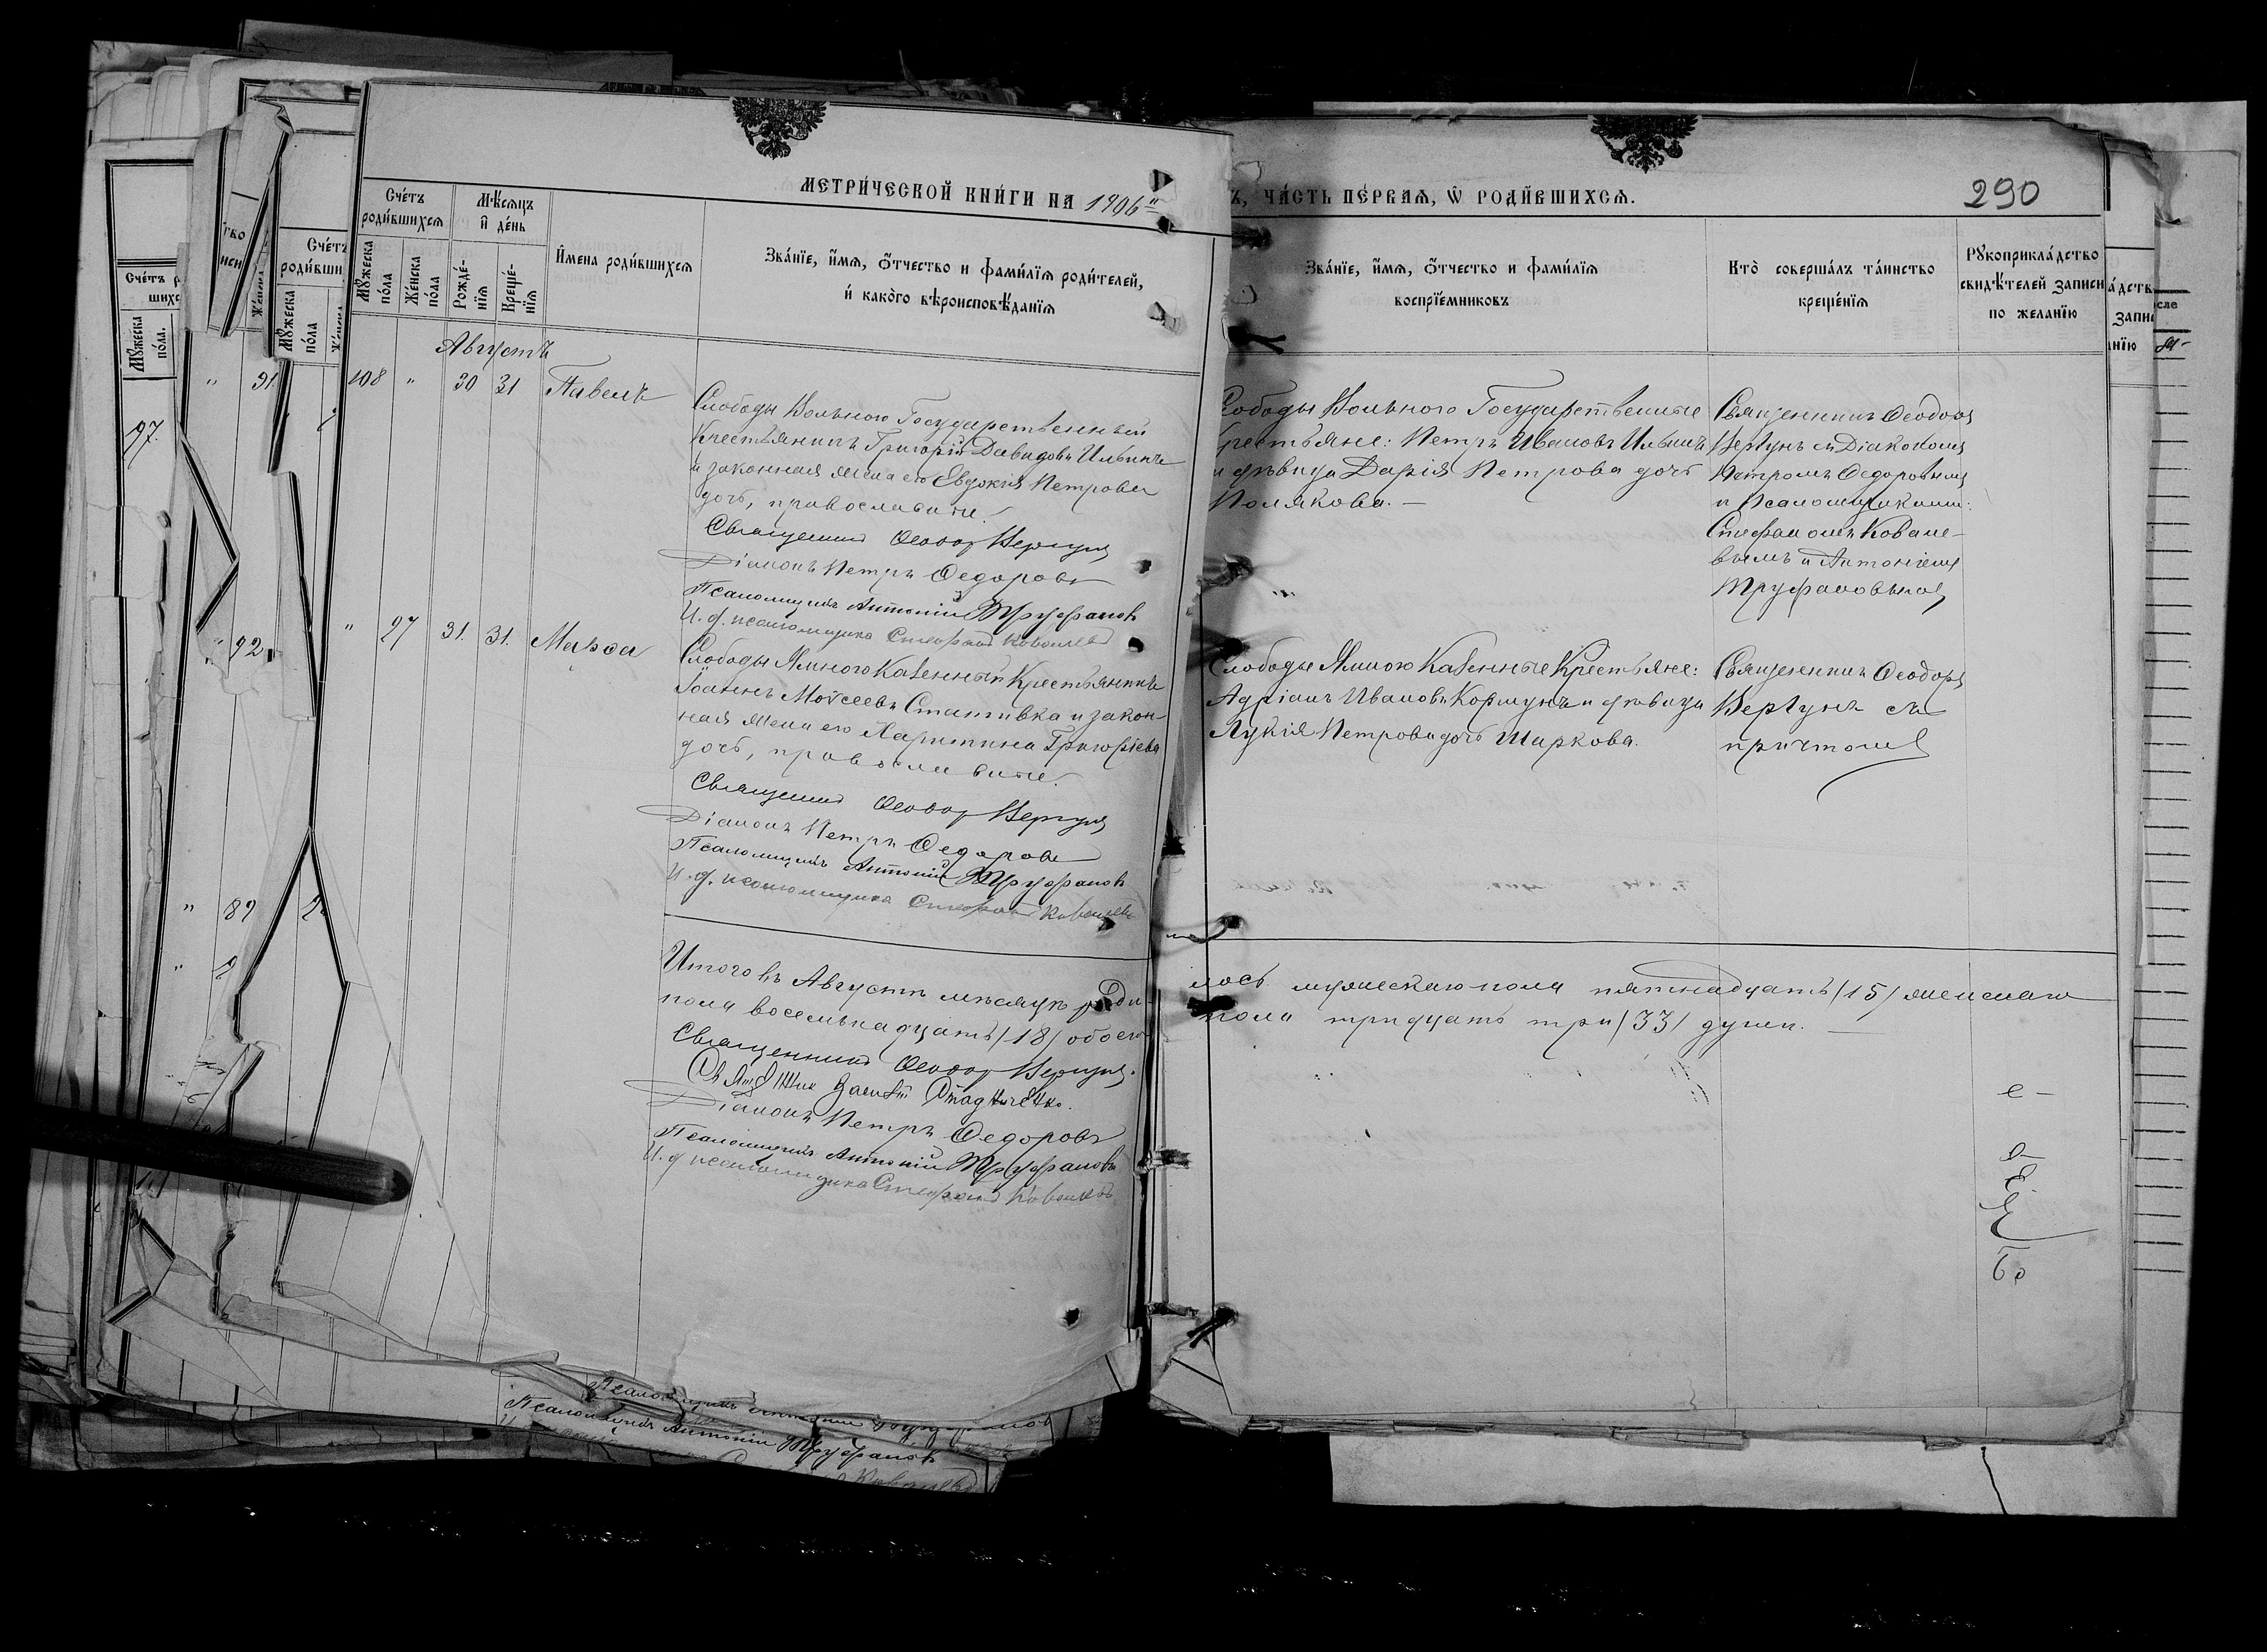 МЕТРИ́ЧЕСКОЙ КНИ́ГИ НА 1906
Ъ, ЧА́СТЬ ПЕ́РВАЯ, Ѡ РОДИ́ВШИХСЯ.
290
Сче́тъ
роди́вшихся
Мꙋжеска
по́ла
Же́нска
по́ла
Мѣ́сяцъ
и де́нь
Рожде́-
нїя
Креще́-
нїя
И҆мена роди́вшихся
Зва́нїе, и҆́мя, ѻ҆́тчество и фами́лїя роди́телей,
и како́го вѣроисповѣ́данїя
Зва́нїе, и҆́мя, ѻ҆́тчество и фами́лїя
воспрїе́мниковъ
Кто̀ соверша́лъ та́инство
креще́нїя
Рꙋкоприкла́дство
свидѣ́телей записи
по жела́нїю
Августъ
108 " 30 31 Павелъ
Слободы Вольного Государственный
Крестьянинъ Григорій Давидовъ Ильинъ
и законная жена его Евдокія Петрова
дочь, православные.
Священникъ Ѳеодор Вергунъ
Діаконъ Петръ Ѳедоровъ
Псаломщикъ Антоній Труфановъ
И. д. псаломщика Стефанъ Ковалевъ
Слободы Вольного Государственные
Крестьяне: Петръ Ивановъ Ильинъ
и дѣвица Дарія Петрова дочь
Полякова. —
Священникъ Ѳеодоръ
Вергунъ съ Діакономъ
Петромъ Ѳедоровымъ
и Псаломщиками:
Стефаномъ Ковале-
вымъ и Антоніемъ
Труфановымъ
" 97 31. 31. Марѳа
Слободы Ямного Казенный Крестьянинъ
Іоаннъ Моѵсеевъ Стативка и закон-
ная жена его Харитина Григоріева
дочь, православные.
Священникъ Ѳеодор Вергунъ
Діаконъ Петръ Ѳедоровъ
Псаломщикъ Антоній Труфановъ
И. д. псаломщика Стефанъ Ковалевъ
Слободы Ямного Казенные Крестьяне:
Адріанъ Ивановъ Коршунъ и дѣвица
Лукія Петрова дочь Шаркова.
Священникъ Ѳеодоръ
Вергунъ съ
причтомъ
Итого въ Августѣ мѣсяцѣ роди-
лось мужескаго пола пятнадцать /15/ женскаго
пола восемьнадцать /18/ обоего
пола тридцать три /33/ души. —
Священникъ Ѳеодор Вергунъ.
Діаконъ Петръ Ѳедоровъ
Псаломщикъ Антоній Труфановъ
И. д. псаломщика Стефанъ Ковалевъ
97.
" 91
" 92
" 89
Псаломщикъ Антоній Труфановъ